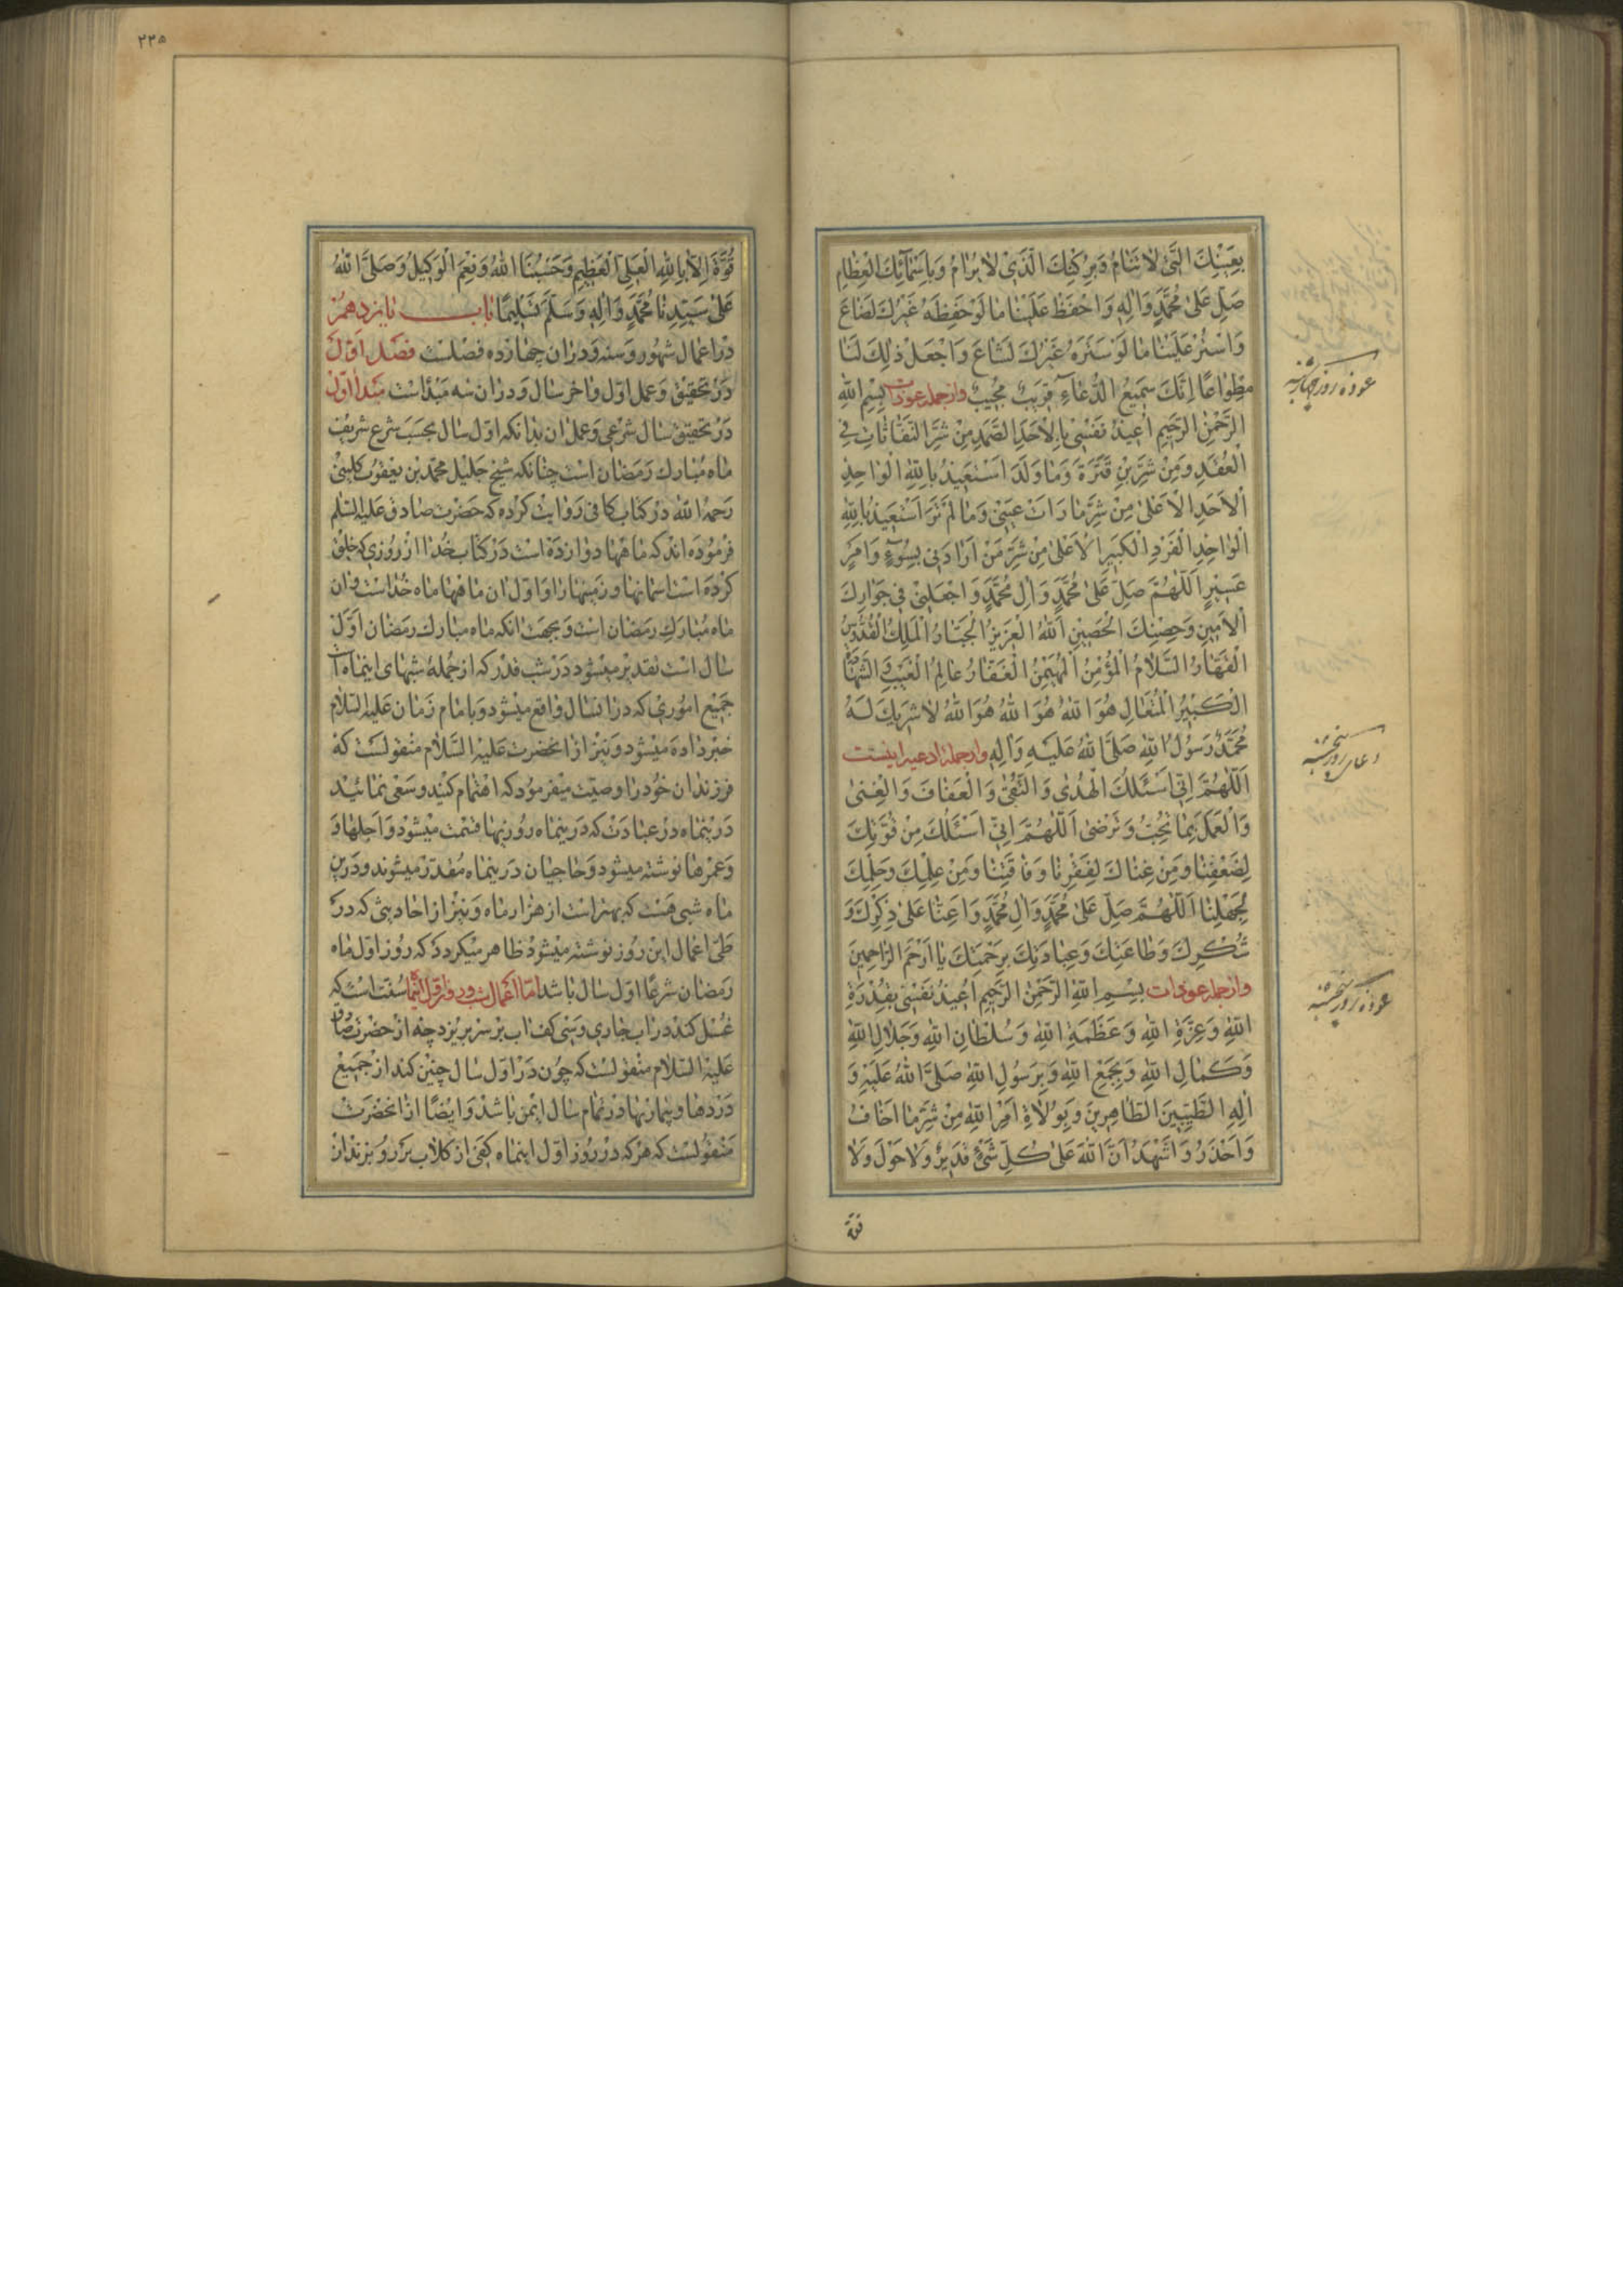 بِعَيْنِكَ الَّتي لا تَنامُ وَبِرُكْنِكَ الَّذي لا يُرامُ وَبِاَسْمآئِكَ الْعِظامِ
صَلِّ عَلى مُحَمَّدٍ وَالِهِ وَاحْفَظْ عَلَيْنا ما لَوْ حَفِظَهُ غَيْرُكَ لَضاعَ
وَاسْتُرْ عَلَيْنا ما لَوْ سَتَرَهُ غَيْرُكَ لَشاعَ وَاجْعَلْ ذلِكَ لَنا
مِطْواعًا اِنَّكَ سَميعُ الدُّعاءِ قَريبٌ مُجيبٌ وازجمله عوذات بِسْمِ اللهِ
الرَّحْمنِ الرَّحيمِ اُعيذُ نَفْسي بِالْاَحَدِ الصَّمَدِ مِنْ شَرِّ النَّفّاثاتِ فِي
الْعُقَدِ وَمِنْ شَرِّ بْنِ قِتَرَةَ وَما وَلَدَ اَسْتَعيذُ بِاللهِ الْواحِدِ
الْاَحَدِ الْاَعْلى مِنْ شَرِّ ما رَاَتْ عَيْني وَما لَمْ تَرَ اَسْتَعيذُ بِاللهِ
الْواحِدِ الْفَرْدِ الْكَبيرِ الْاَعْلى مِنْ شَرِّ مَنْ اَرادَني بِسُوءٍ وَاَمْرٍ
عَسيرٍ اَللّهُمَّ صَلِّ عَلى مُحَمَّدٍ وَالِ مُحَمَّدٍ وَاجْعَلْني في جِوارِكَ
الْاَمينِ وَحِصْنِكَ الْحَصينِ اَللهُ الْعَزيزُ الْجَبّارُ الْمَلِكُ الْقُدُّوسُ
الْقَهّارُ السَّلامُ الْمُؤْمِنُ الْمُهَيْمِنُ الْغَفّارُ عالِمُ الْغَيْبِ وَالشَّهادَةِ
الْكَبيرُ الْمُتَعالِ هُوَ اللهُ هُوَ اللهُ هُوَ اللهُ لا شَريكَ لَهُ
مُحَمَّدٌ رَسُولُ اللهِ صَلَّى اللهُ عَلَيْهِ وَالِهِ وازجمله ادعیه اینست
اَللّهُمَّ اِنّي اَسْئَلُكَ الْهُدى وَالتُّقى وَالْعَفافَ وَالْغِنى
وَالْعَمَلَ بِما تُحِبُّ وَتَرْضى اَللّهُمَّ اِنّي اَسْئَلُكَ مِنْ قُوَّتِكَ
لِضَعْفِنا وَمِنْ غِناكَ لِفَقْرِنا وَفاقَتِنا وَمِنْ عِلْمِكَ وَحِلْمِكَ
لِجَهْلِنا اَللّهُمَّ صَلِّ عَلى مُحَمَّدٍ وَالِ مُحَمَّدٍ وَاَعِنّا عَلى ذِكْرِكَ وَ
شُكْرِكَ وَطاعَتِكَ وَعِبادَتِكَ بِرَحْمَتِكَ يا اَرْحَمَ الرّاحِمينَ
وازجمله عوذات بِسْمِ اللهِ الرَّحْمنِ الرَّحيمِ اُعيذُ نَفْسي بِقُدْرَةِ
اللهِ وَعِزَّةِ اللهِ وَعَظَمَةِ اللهِ وَسُلْطانِ اللهِ وَجَلالِ اللهِ
وَكَمالِ اللهِ وَبِجَمْعِ اللهِ وَبِرَسُولِ اللهِ صَلَّى اللهُ عَلَيْهِ وَ
الِهِ الطَّيِّبينَ الطّاهِرينَ وَبِوُلاةِ اَمْرِ اللهِ مِنْ شَرِّ ما اَخافُ
وَاَحْذَرُ وَاَشْهَدُ اَنَّ اللهَ عَلى كُلِّ شَيْءٍ قَديرٌ وَلا حَوْلَ وَلا
قوة
عوذه روز چهارشنبه
دعای روز پنجشنبه
عوذه روز پنجشنبه
۲۲۵
قُوَّةَ اِلّا بِاللهِ الْعَلِيِّ الْعَظيمِ وَحَسْبُنَا اللهُ وَنِعْمَ الْوَكيلُ وَصَلَّى اللهُ
عَلى سَيِّدِنا مُحَمَّدٍ وَالِهِ وَسَلَّمَ تَسْليمًا باب پانزدهم
در اعمال شهور و سنه و دران چهارده فصلست فصل اول
در تحقیق و عمل اول و اخر سال و دران سه مبداست مبدأ اول
در تحقیق سال شرعی و عمل ان بدانکه اول سال بحسب شرع شریف
ماه مبارک رمضان است چنانکه شیخ جلیل محمد بن یعقوب کلینی
رحمه الله در کتاب کافی روایت کرده که حضرت صادق علیه السلم
فرموده اند که ماهها دوازده است در کتاب خدا از روزی که خلق
کرده است اسمانها و زمینها را و اول ان ماهها ماه خداست و ان
ماه مبارک رمضان است و بجهت انکه ماه مبارک رمضان اول
سال است تقدیر میشود در شب قدر که از جمله شبهای اینماه است
جمیع اموری که در انسال واقع میشود و بامام زمان علیه السلام
خبر داده میشود و نیز از انحضرت علیه السلام منقولست که
فرزندان خود را وصیت میفرمود که اهتمام کنید و سعی نمائید
درینماه در عبادت که درینماه روزیها قسمت میشود و اجلها و
و عمرها نوشته میشود و حاجیان درینماه مقدر میشوند و درین
ماه شبی هست که بهتر است از هزار ماه و نیز از احادیثی که در
طی اعمال این روز نوشته میشود ظاهر میگردد که روز اول ماه
رمضان شرعا اول سال باشد اما اعمال شب و روز اول اینماه سنت است که
غسل کند در اب جاری و سی کف اب بر سر بریزد چه از حضرت صادق
علیه السلام منقولست که چون در اول سال چنین کند از جمیع
دردها و بیماریها در تمام سال ایمن باشد و ایضا از انحضرت
منقولست که هر که در روز اول اینماه کفی از کلاب بر رو بزند از